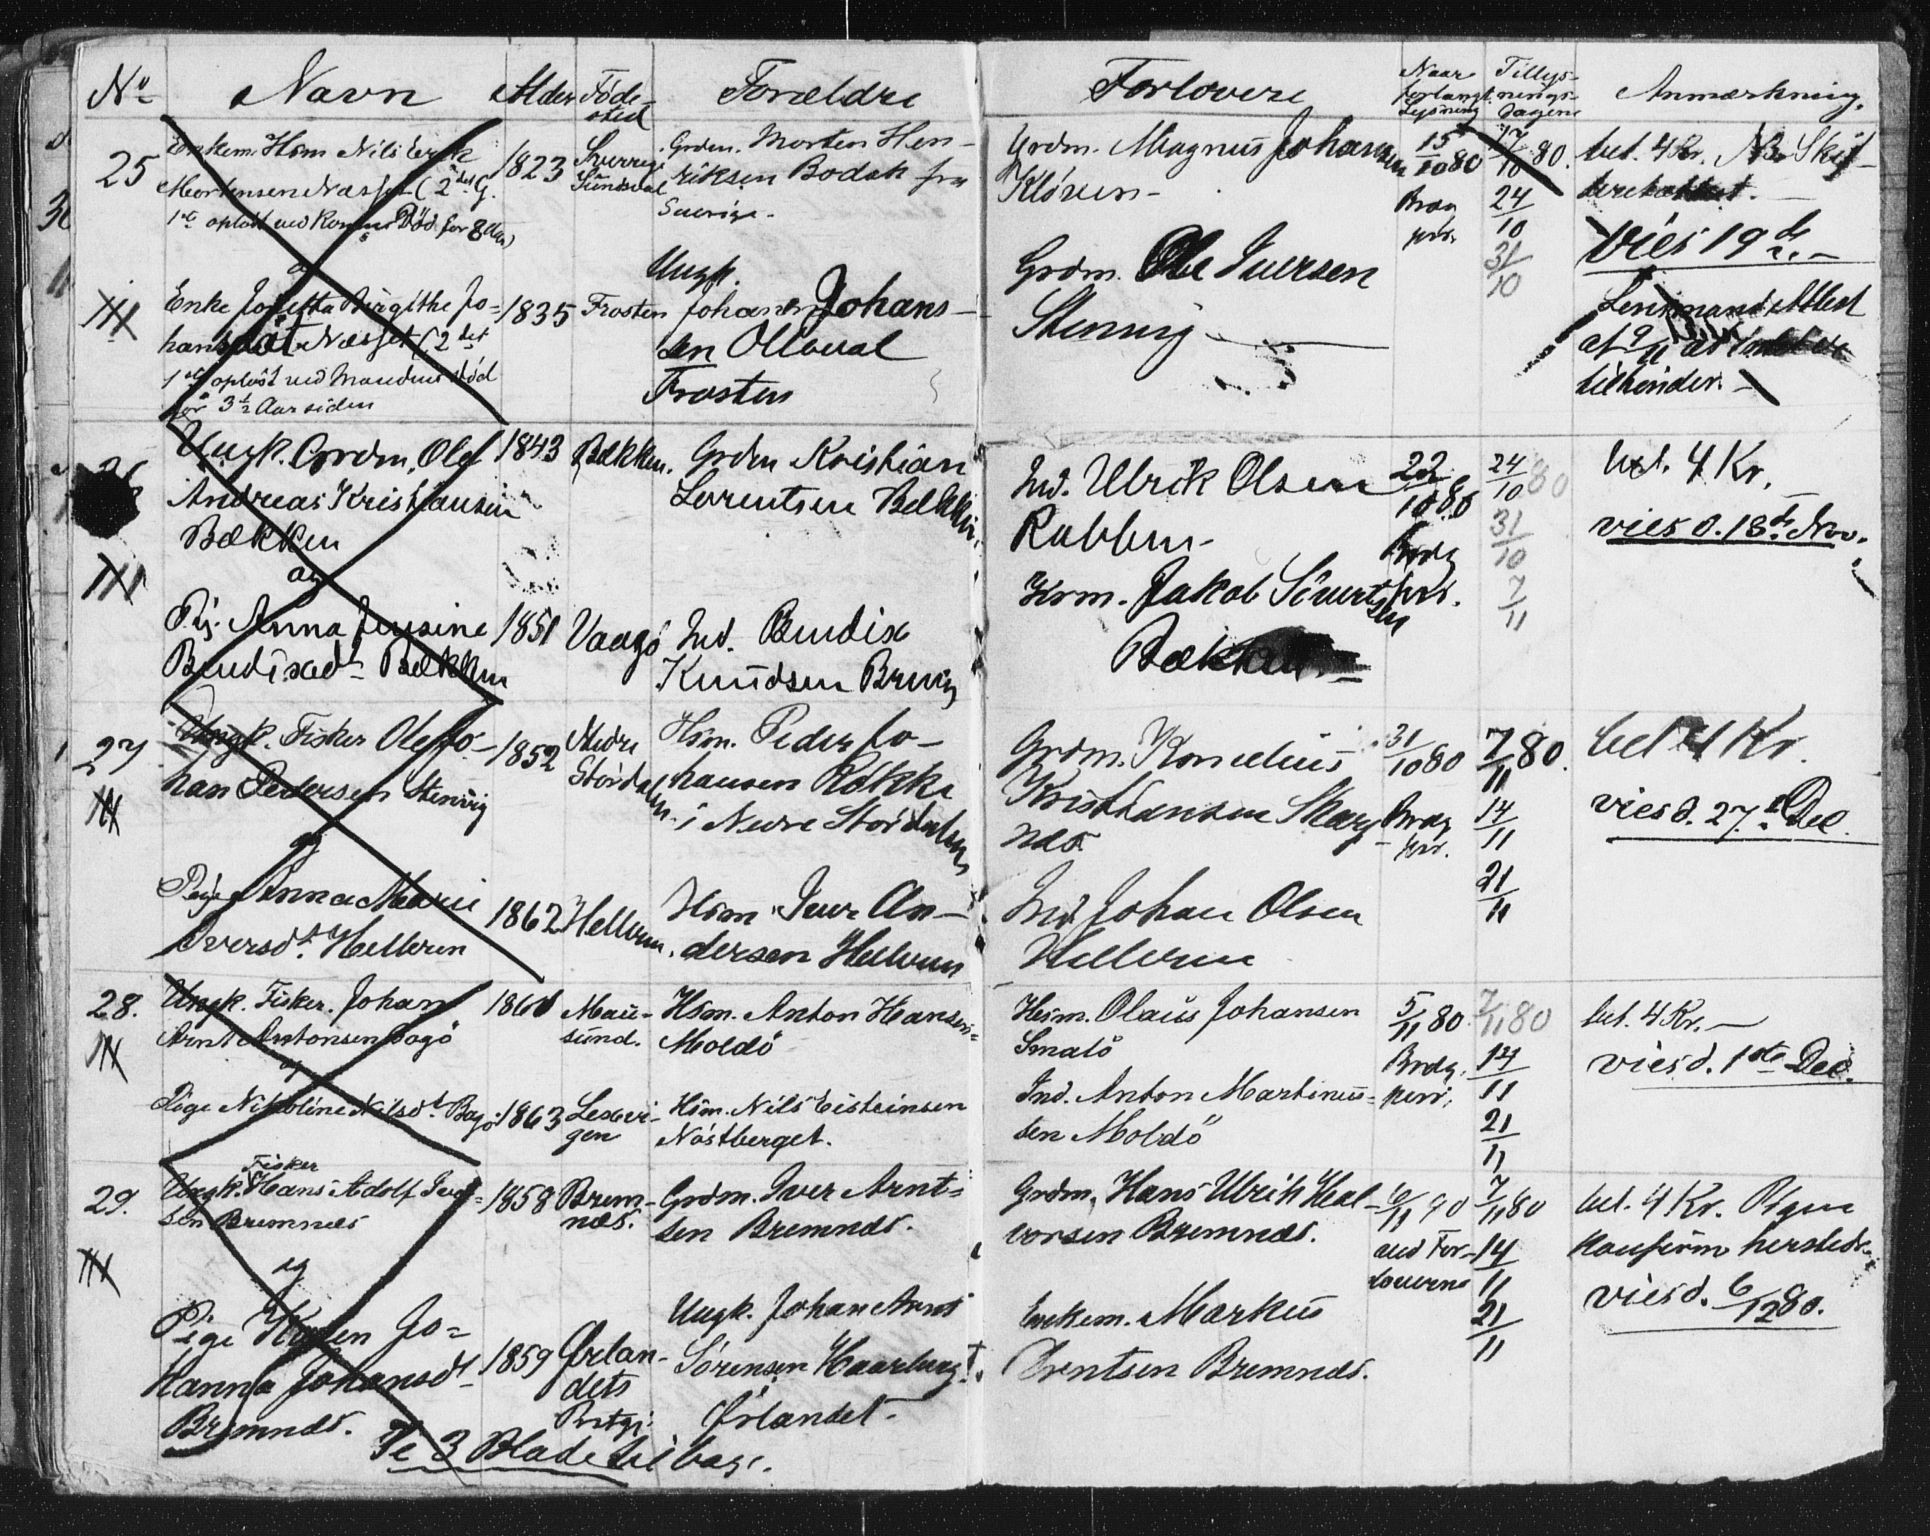 No Navn Alder Födested Forældre Forlovere Naar forlangt Lysning Tillysningsdagene Anmærkning.
25
Enkem. Hsm Nils Erik
Mortensen Næsset (2det G.
1ste oplöst ved Konens Död for 8 Aar)
1823
Sverrige
Sundsval
Grdm. Morten Hen-
riksen Bodak fra
Sverige.
Grdm. Magnus Johansen
Klöven-
15/10 80
Brdg
priv.
17/10 80.
24/10
31/10
bet. 4 Kr. NB. Skif-
vies 19de
og
Enke Josefta Birgithe Jo-
hansdat Næsset (2det
1ste oplöst ved Mandens död
for 3½ Aar siden
1835
Frosten
Ungk.
Johan Johans-
sen Olloval
Frosten
Grdm. Ole Iversen
Stenvig
Lensmand Attest
af 9/11
tilhænder. -
26
Ungk. Grdm. Ole
Andreas Kristiansen
Bækken
1843
Bækken.
Grdm Kristian
Lorentsen Bækken.
Ind. Ulrik Olsen
Rabben-
22/10 80
Brdg
priv.
24/10 80
31/10
7/11
bet. 4 Kr.
vies d. 18de Nov.
og
Pig. Anna Jensine
Bendixedt Bækken
1851
Vaagö
Ind. Bendix
Knudsen Breivig
Krm. Jakob Sivertsen
Bækken
27
Ungk. Fisker Ole Jo-
han Pedersen Stenvig
1852
Nedre
Stördalen.
Hsm. Peder Jo-
hansen Rökke
i Nedre Stördalen
Grdm. Kornelius
Kristiansen Skarp-
næs.
31/10 80
Brdg
priv.
7/11 80.
14/11
21/11
bet 4 Kr.
vies d. 27de Dec.
og
Pige Anna Marie
Iversdt. Helleren
1862
Helleren.
Hsm. Iver An-
dersen Helleren
Ind Johan Olsen
Helleren
28.
Ungk. Fisker. Johan
Arnt Antonsen Bogö
1861
Mau-
sund.
Hsm. Anton Hansen-
Moldö
Hsm. Olaus Johansen
Smalö
5/11 80
Brdg.
priv.
7/11 80
14/11
21/11
bet. 4 Kr. -
vies d. 1ste Dec.
og
Pige Nikoline Nilsdt. Bogö
1863
Lexvi-
gen
Hsm. Nils Eisteinsen
Nöstberget.
Ind. Anton Martinus-
sen Moldö
29.
Fisker
Ungk. Hans Adolf Iver-
sen Bremnæs
1858
Brem-
næs.
Grdm. Iver Arnt-
sen Bremnæs.
Grdm. Hans Ulrik Hal-
vorsen Bremnæs.
6/11 90
ved For-
loverne
7/11 80
14/11
21/11
bet. 4 Kr. Pigen
konfirm herstedr.
vies d. 6/12 80.
og
Pige Karen Jo-
hanna Johansdt
Bremnæs.
1859
Ørlan-
dets
Prstgj.
Ungk. Johan Arnt
Sörensen Haarberg
Ørlandet.
Enkem. Markus
Arntsen Bremnæs.
Se 3 Blade tilbage.